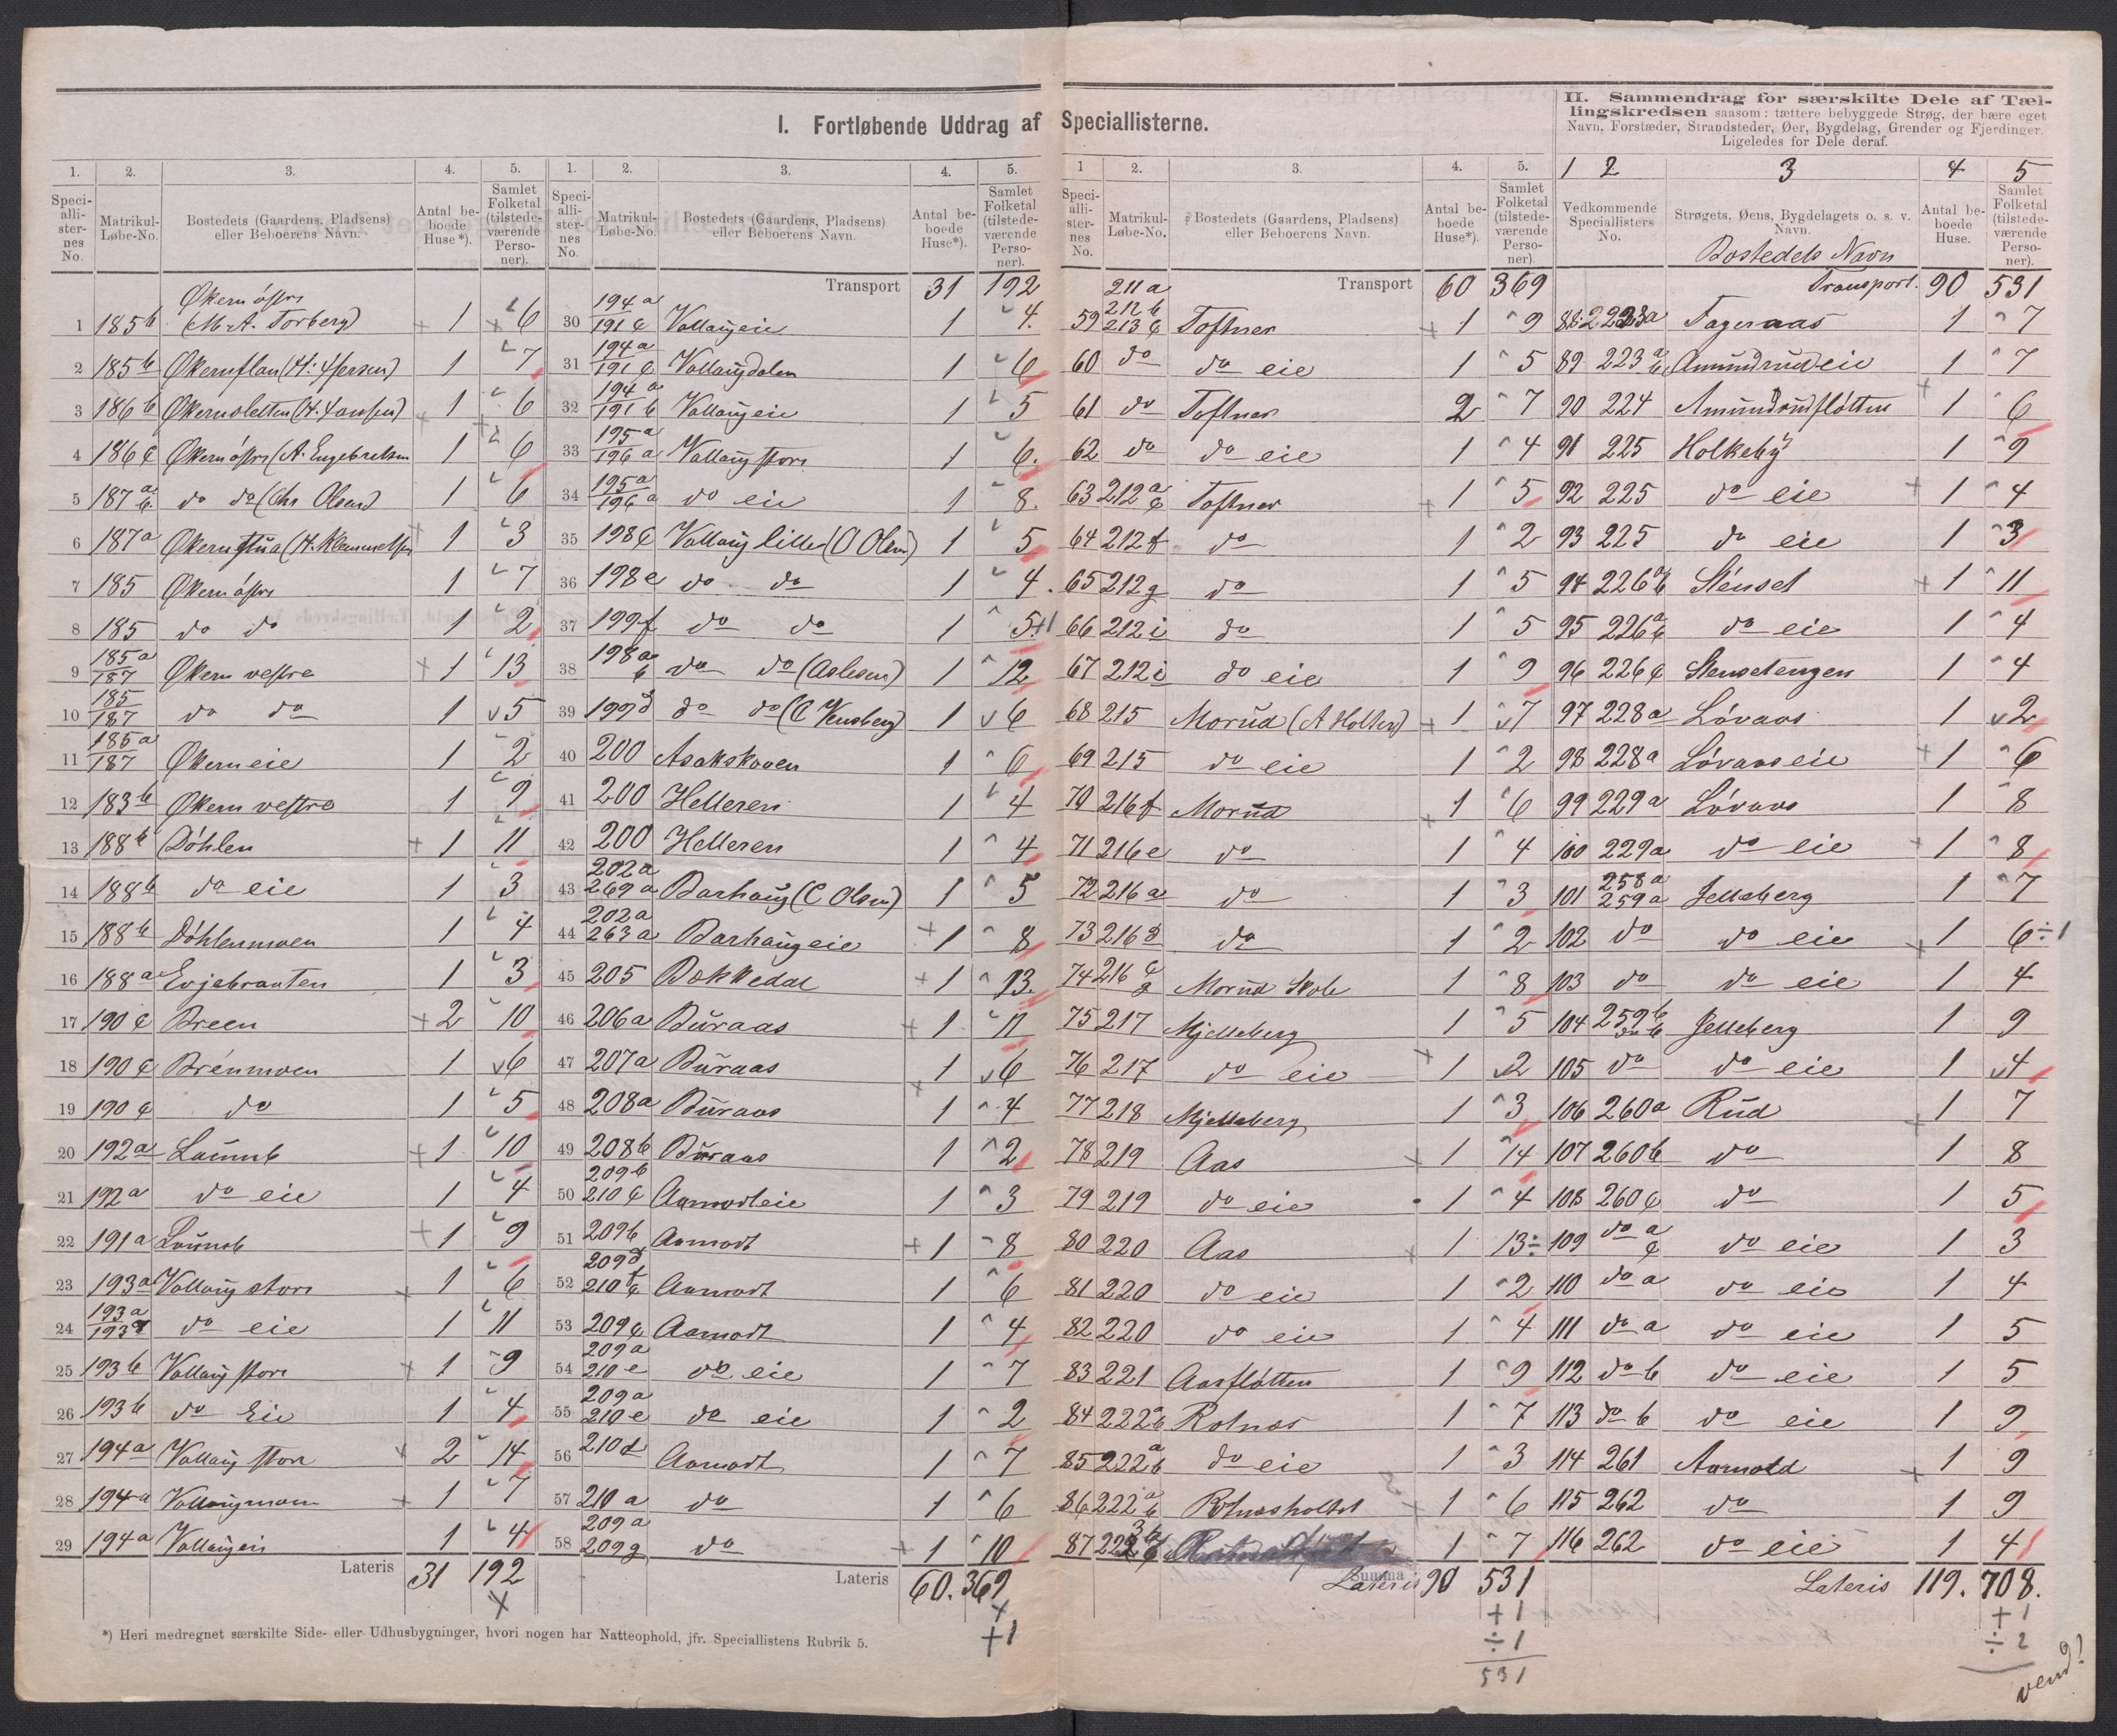 I. Fortløbende Uddrag af Speciallisterne.
1. 2. 3. 4. 5.
Speci-alli-ster-nes No. Matrikul-Løbe-No. Bostedets (Gaardens, Pladsens) eller Beboerens Navn. Antal be-boede Huse*). Samlet Folketal (tilstede-værende Perso-ner).
1 185b Økern östre (M. A. Torberg) 1 6
2 185b Økernflan (H. Hersen) 1 7
3 186b Økernsletten (H. Jonsen) 1 6
4 186c Økern östre (A. Engebretsen 1 6
5 187 a b do do (Chr Olsen) 1 6
6 187a Økernstua (H. Klemmetsen 1 3
7 185 Økern östre 1 7
8 185 do do 1 2
9 185a 187 Økern vestre 1 13
10 185 187 do do 1 5
11 185a 187 Økerneie 1 2
12 183b Økern vestre 1 9
13 188b Döhlen 1 11
14 188b do eie 1 3
15 188b Döhlenmoen 1 4
16 188a Evjebraaten 1 3
17 190c Breen 2 10
18 190c Brénmoen 1 6
19 190c do 1 5
20 192a Laumb 1 10
21 192a do eie 1 4
22 191a Laumb 1 9
23 193a Vollaug store 1 6
24 193a 193d do eie 1 11
25 193b Vollaug store 1 9
26 193b do Eie 1 4
27 194a Vollaug store 2 14
28 194a Vollaugmoen 1 7
29 194a Vollaugeie 1 4
Lateris 31 192
*) Heri medregnet særskilte Side- eller Udhusbygninger, hvori nogen har Natteophold, jfr. Speciallistens Rubrik 5.
1. 2. 3. 4. 5.
Speci-alli-ster-nes No. Matrikul-Løbe-No. Bostedets (Gaardens, Pladsens) eller Beboerens Navn. Antal be-boede Huse*). Samlet Folketal (tilstede-værende Perso-ner).
Transport 31 192
30 194a 191c Vollaugeie 1 4.
31 194a 191c Vollaugdalen 1 6
32 194a 191b Vollaugeie 1 5
33 195a 196a Vollaug store 1 6.
34 195a 196a do eie 1 8.
35 198c Vollaug lille (O Olsen) 1 5
36 198e do do 1 4.
37 199f do do 1 5+1
38 198a b do do (Aslesen) 1 12
39 199d do do (C Vensberg) 1 6
40 200 Asakskoven 1 6
41 200 Helleren 1 4
42 200 Helleren 1 4
43 202a 269a Barhaug (C Olsen) 1 5
44 202a 263a Barhaugeie 1 8
45 205 Bækkedal 1 13.
46 206a Buraas 1 11
47 207a Buraas 1 6
48 208a Buraas 1 4
49 208b Buraas 1 2
50 209b 210c Aamodteie 1 3
51 209b Aamodt 1 8
52 209d 210f c Aamodt 1 6
53 209c Aamodt 1 4
54 209a 210e do eie 1 7
55 209a 210e do eie 1 2
56 210d Aamodt 1 7
57 210a do 1 6
58 209a 209g do 1 10
Lateris 60. 369
+1
1 2. 3. 4. 5.
Speci-alli-ster-nes No. Matrikul-Løbe-No. Bostedets (Gaardens, Pladsens) eller Beboerens Navn. Antal be-boede Huse*). Samlet Folketal (tilstede-værende Perso-ner)
Transport 60 369
59 211a 212b 213c Toftner 1 9
60 do do eie 1 5
61 do Toftner 2 7
62 do do eie 1 4
63 212a c Toftner 1 5
64 212f do 1 2
65 212g do 1 5
66 212i do 1 5
67 212i do eie 1 9
68 215 Morud (A Holter) 1 7
69 215 do eie 1 2
70 216f Morud 1 6
71 216e do 1 4
72 216a do 1 3
73 216 do 1 2
74 216 Morud Skole 1 8
75 217 Mjelleberg 1 5
76 217 do eie 1 2
77 218 Mjelleberg 1 3
78 219 Aas 1 14
79 219 do eie 1 4
80 220 Aas 1 13÷
81 220 do eie 1 2
82 220 do eie 1 4
83 221 Aasflötten 1 9
84 222 a b Rotnæs 1 7
85 222 a b do eie 1 3
86 222 a b Rotnæsholtet 1 6
87 1 7
Summa Lateris 90 531
+1
÷1
531
II. Sammendrag for særskilte Dele af Tæl-
lingskredsen saasom: tættere bebyggede Strøg, der bære eget
Navn, Forstæder, Strandsteder, Øer, Bygdelag, Grender og Fjerdinger.
Ligeledes for Dele deraf.
1 2 3 4 5
Vedkommende Speciallisters No. Strøgets, Øens, Bygdelagets o. s. v. Navn. Bostedets Navn Antal be-boede Huse. Samlet Folketal (tilstede-værende Perso-ner).
Transport. 90 531
88 223a Fageraas 1 7
89 223 a b Amundrudeie 1 7
90 224 Amundrudflötten 1 6
91 225 Holkeby 1 9
92 225 do eie 1 4
93 225 do eie 1 3
94 226 a b Stenset 1 11
95 226 a c do eie 1 4
96 226c Stensetengen 1 4
97 228a Lövaas 1 2
98 228a Lövaaseie 1 6
99 229a Lövaas 1 8
100 229a do eie 1 8
101 258a 259a Jelleberg 1 7
102 do do eie 1 6÷1
103 do do eie 1 4
104 259b Jelleberg 1 9
105 do do eie 1 4
106 260a Rud 1 7
107 260b do 1 8
108 260c do 1 5
109 do a c do eie 1 3
110 do a do eie 1 4
111 do a do eie 1 5
112 do b do eie 1 5
113 do b do eie 1 9
114 261 Aamold 1 9
115 262 do 1 9
116 262 do eie 1 4
Lateris 119. 708.
+1
÷2
vend!